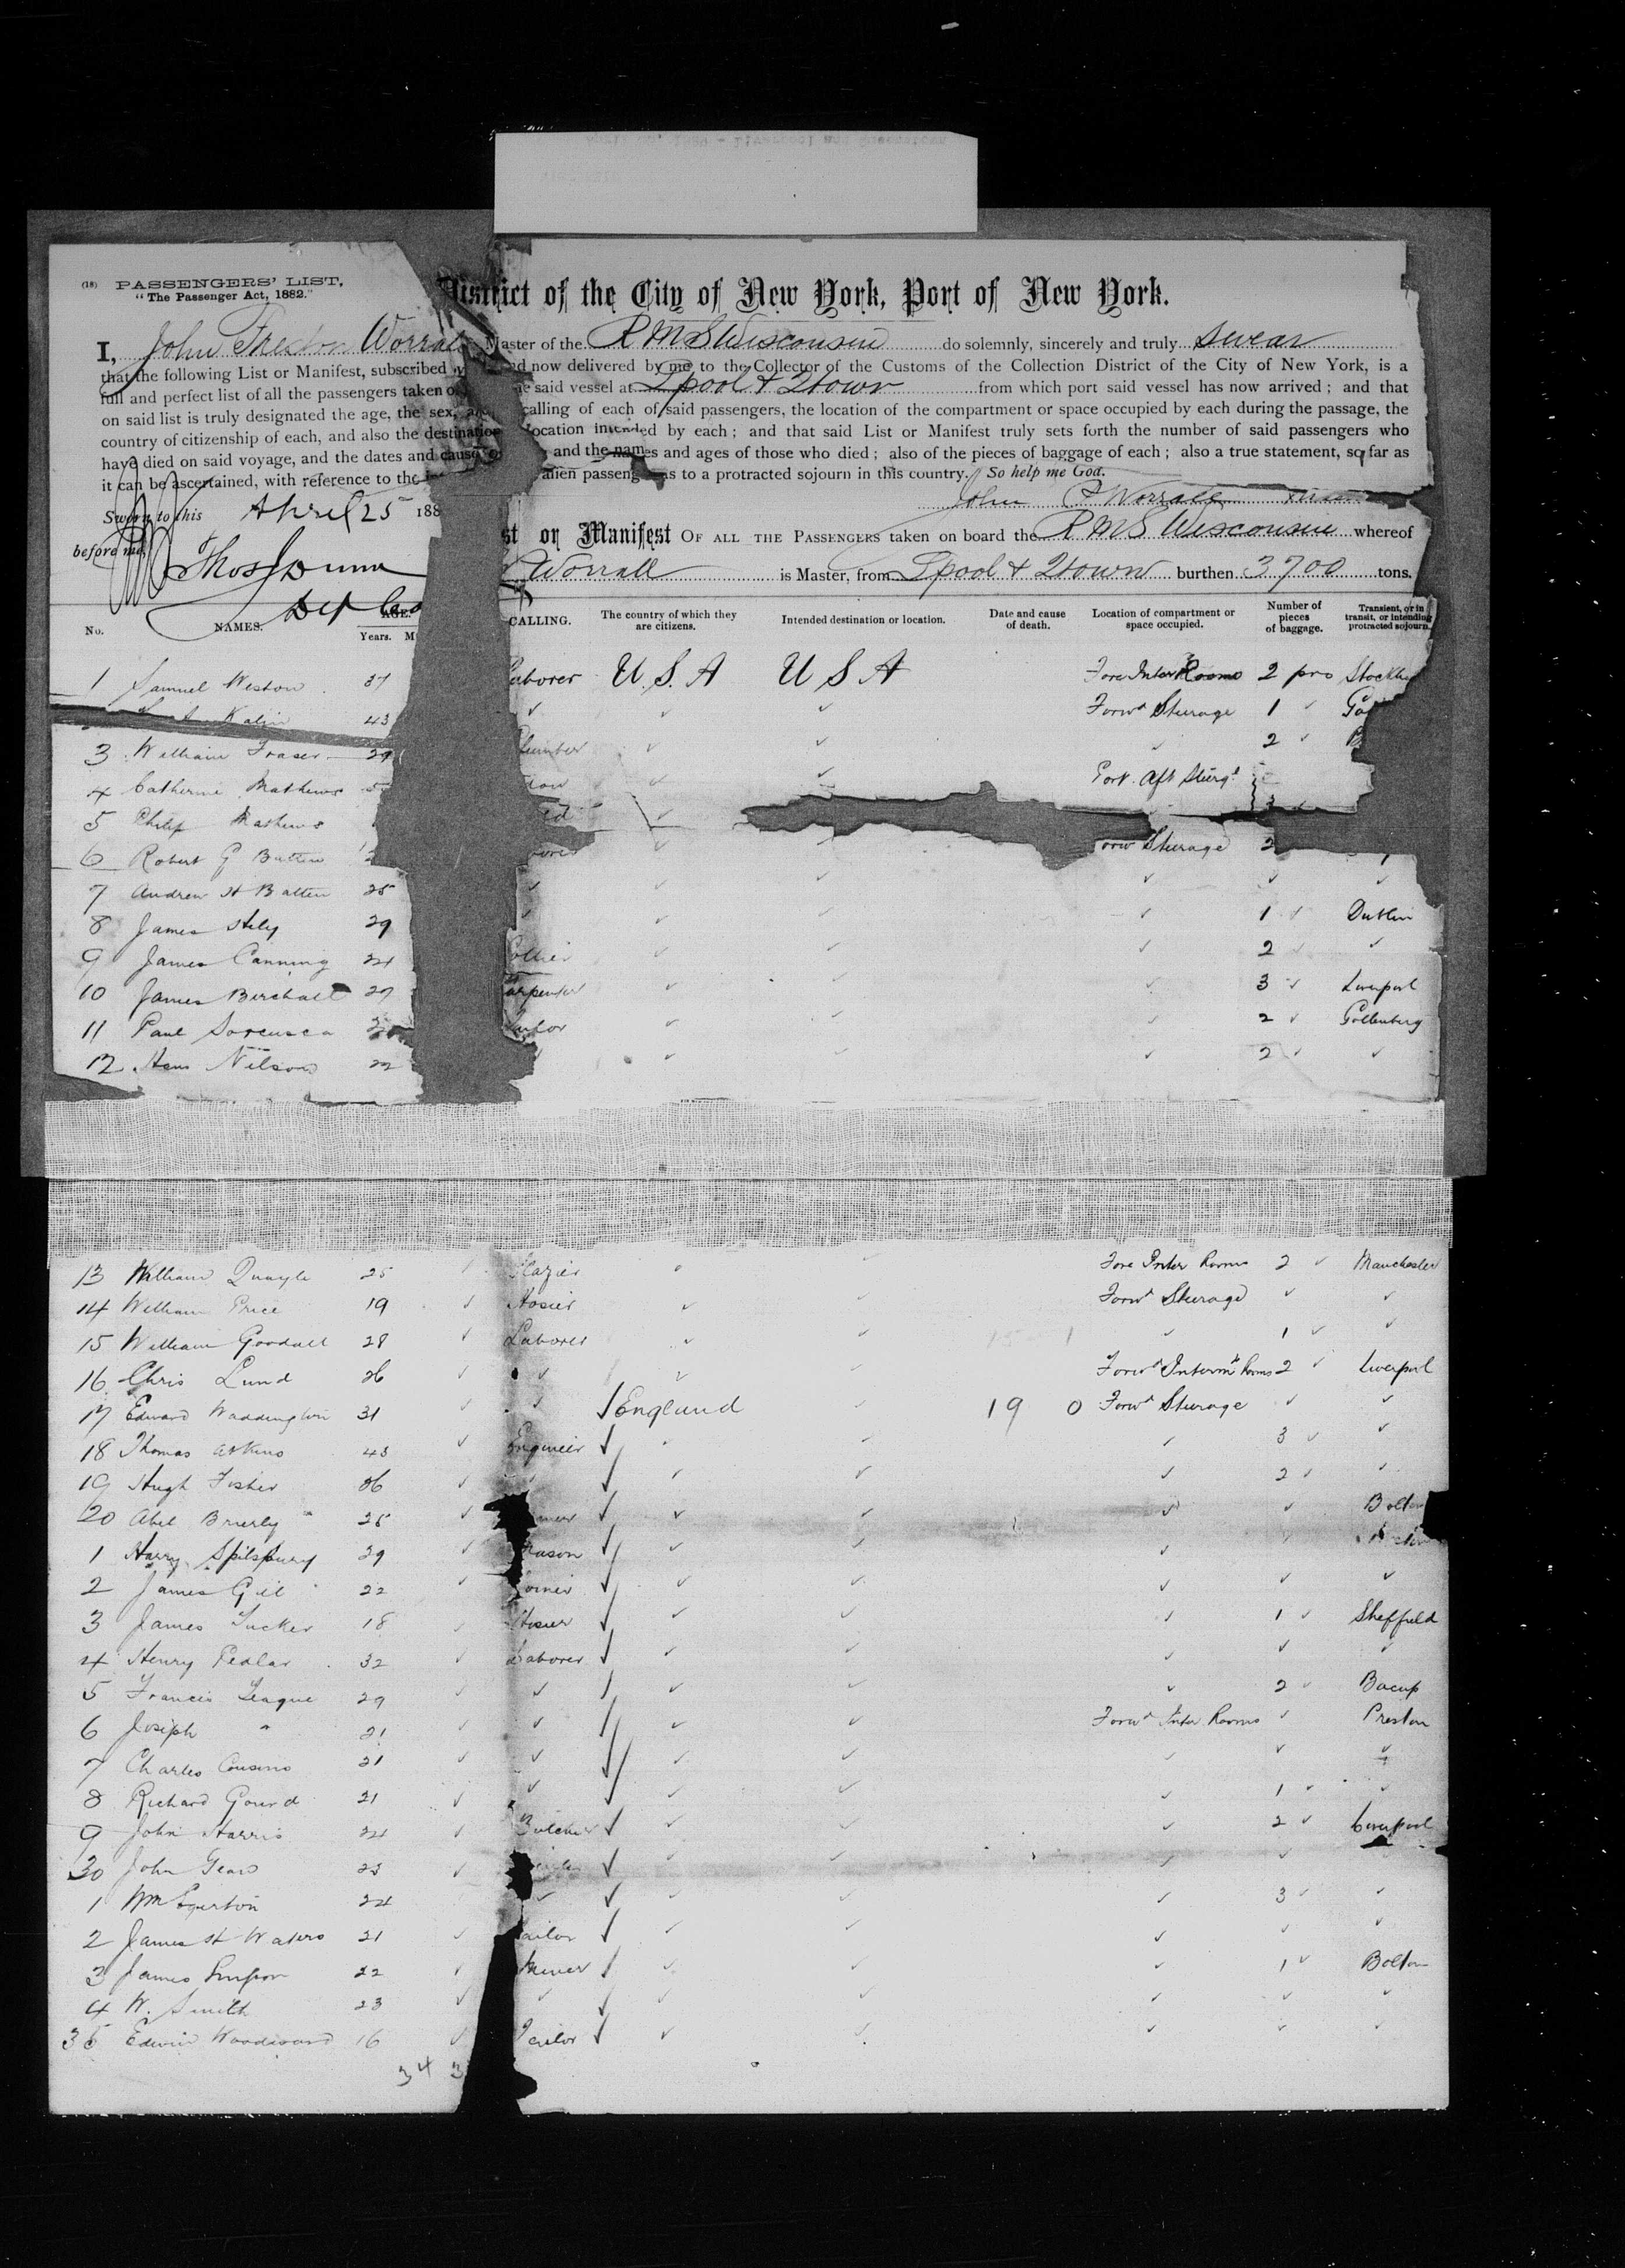 (18) PASSENGERS' LIST,
"The Passenger Act, 1882."
District of the City of New York, Port of New York.
I, John Worrall Master of the R M S Wisconsin do solemnly, sincerely and truly swear
that the following List or Manifest, subscribed and now delivered by me to the Collector of the Customs of the Collection District of the City of New York, is a
full and perfect list of all the passengers taken said vessel at Lpool & Qtown from which port said vessel has now arrived ; and that
on said list is truly designated the age, the sex, calling of each of said passengers, the location of the compartment or space occupied by each during the passage, the
country of citizenship of each, and also the destination location intended by each ; and that said List or Manifest truly sets forth the number of said passengers who
have died on said voyage, and the dates and cause and the names and ages of those who died ; also of the pieces of baggage of each ; also a true statement, so far as
it can be ascertained, with reference to the alien passeng as to a protracted sojourn in this country. So help me God.
John P Worrall
Sworn to this April 25 188
before me, Thos J Dunn
Dep
st or Manifest OF ALL THE PASSENGERS taken on board the R M S Wisconsin whereof
Worrall is Master, from Lpool & Qtown burthen 3700 tons.
No. NAMES. AGE. Years. CALLING. The country of which they are citizens. Intended destination or location. Date and cause of death. Location of compartment or space occupied. Number of pieces of baggage. Transient, or in transit, or intending protracted sojourn.
1 Samuel Weston 37 Laborer U.S.A U S A Fore Inter Rooms 2
43 ✓ ✓ ✓ Forwd Steerage 1 ✓
3 William Fraser 29 ✓ ✓ ✓ 2 ✓
4 Catherine Mathews ✓ ✓ Port Aft
5 Philip Mathews ✓
6 Robert G Batten ✓ ✓ Steerage 2
7 Andrew H Batten 25 ✓ ✓ ✓ ✓ ✓
8 James 29 ✓ ✓ ✓ ✓ 1 ✓ Dublin
9 James Canning 24 Collier ✓ ✓ ✓ 2 ✓ ✓
10 James Birchall 27 Carpenter ✓ ✓ ✓ 3 ✓ Liverpool
11 Paul ✓ ✓ ✓ 2 ✓ Gottenburg
12 Nilson 22 ✓ ✓ ✓ ✓ 2 ✓ ✓
13 William Quayle 25 Glazier ✓ ✓ Fore Inter Rooms 2 ✓ Manchester
14 William Price 19 ✓ Hosier ✓ ✓ Forwd Steerage ✓ ✓
15 William Goodall 28 ✓ Laborer ✓ ✓ ✓ 1 ✓ ✓
16 Chris Lund 26 ✓ ✓ ✓ ✓ Forwd Rooms 2 ✓ Liverpool
17 Edward Waddington 31 ✓ ✓ England ✓ 19 0 Forwd Steerage ✓ ✓
18 Thomas Atkins 43 ✓ Engineer ✓ ✓ ✓ 3 ✓ ✓
19 Hugh Fisher 26 ✓ ✓ ✓ ✓ ✓ 2 ✓ ✓
20 Abel Brierly 25 ✓ ✓ ✓ ✓ ✓ Bolton
1 Harry Spilsbury 29 ✓ Mason ✓ ✓ ✓ ✓
2 James Gill 22 ✓ Joiner ✓ ✓ ✓ ✓ ✓
3 James Tucker 18 ✓ Hosier ✓ ✓ ✓ 1 ✓ Sheffield
4 Henry Pedlar 32 ✓ Laborer ✓ ✓ ✓ ✓ ✓
5 Francis League 29 ✓ ✓ ✓ ✓ ✓ 2 ✓ Bacup
6 Joseph " 21 ✓ ✓ ✓ ✓ Forwd Inter Rooms ✓ Preston
7 Charles Cousins 21 ✓ ✓ ✓ ✓ ✓ ✓ ✓
8 Richard Gourd 21 ✓ ✓ ✓ ✓ ✓ 1 ✓ ✓
9 John Harris 24 ✓ Butcher ✓ ✓ ✓ 2 ✓ Liverpool
30 John 23 ✓ ✓ ✓ ✓ ✓
1 Wm Egerton 24 ✓ ✓ ✓ ✓ 3 ✓ ✓
2 James H Waters 21 ✓ Tailor ✓ ✓ ✓ ✓ ✓
3 James Simpson 22 ✓ Miner ✓ ✓ ✓ 1 ✓ Bolton
4 W. Smith 23 ✓ ✓ ✓ ✓ ✓ ✓ ✓
35 Edwin Woodward 16 ✓ Tailor ✓ ✓ ✓ ✓ ✓
34 3